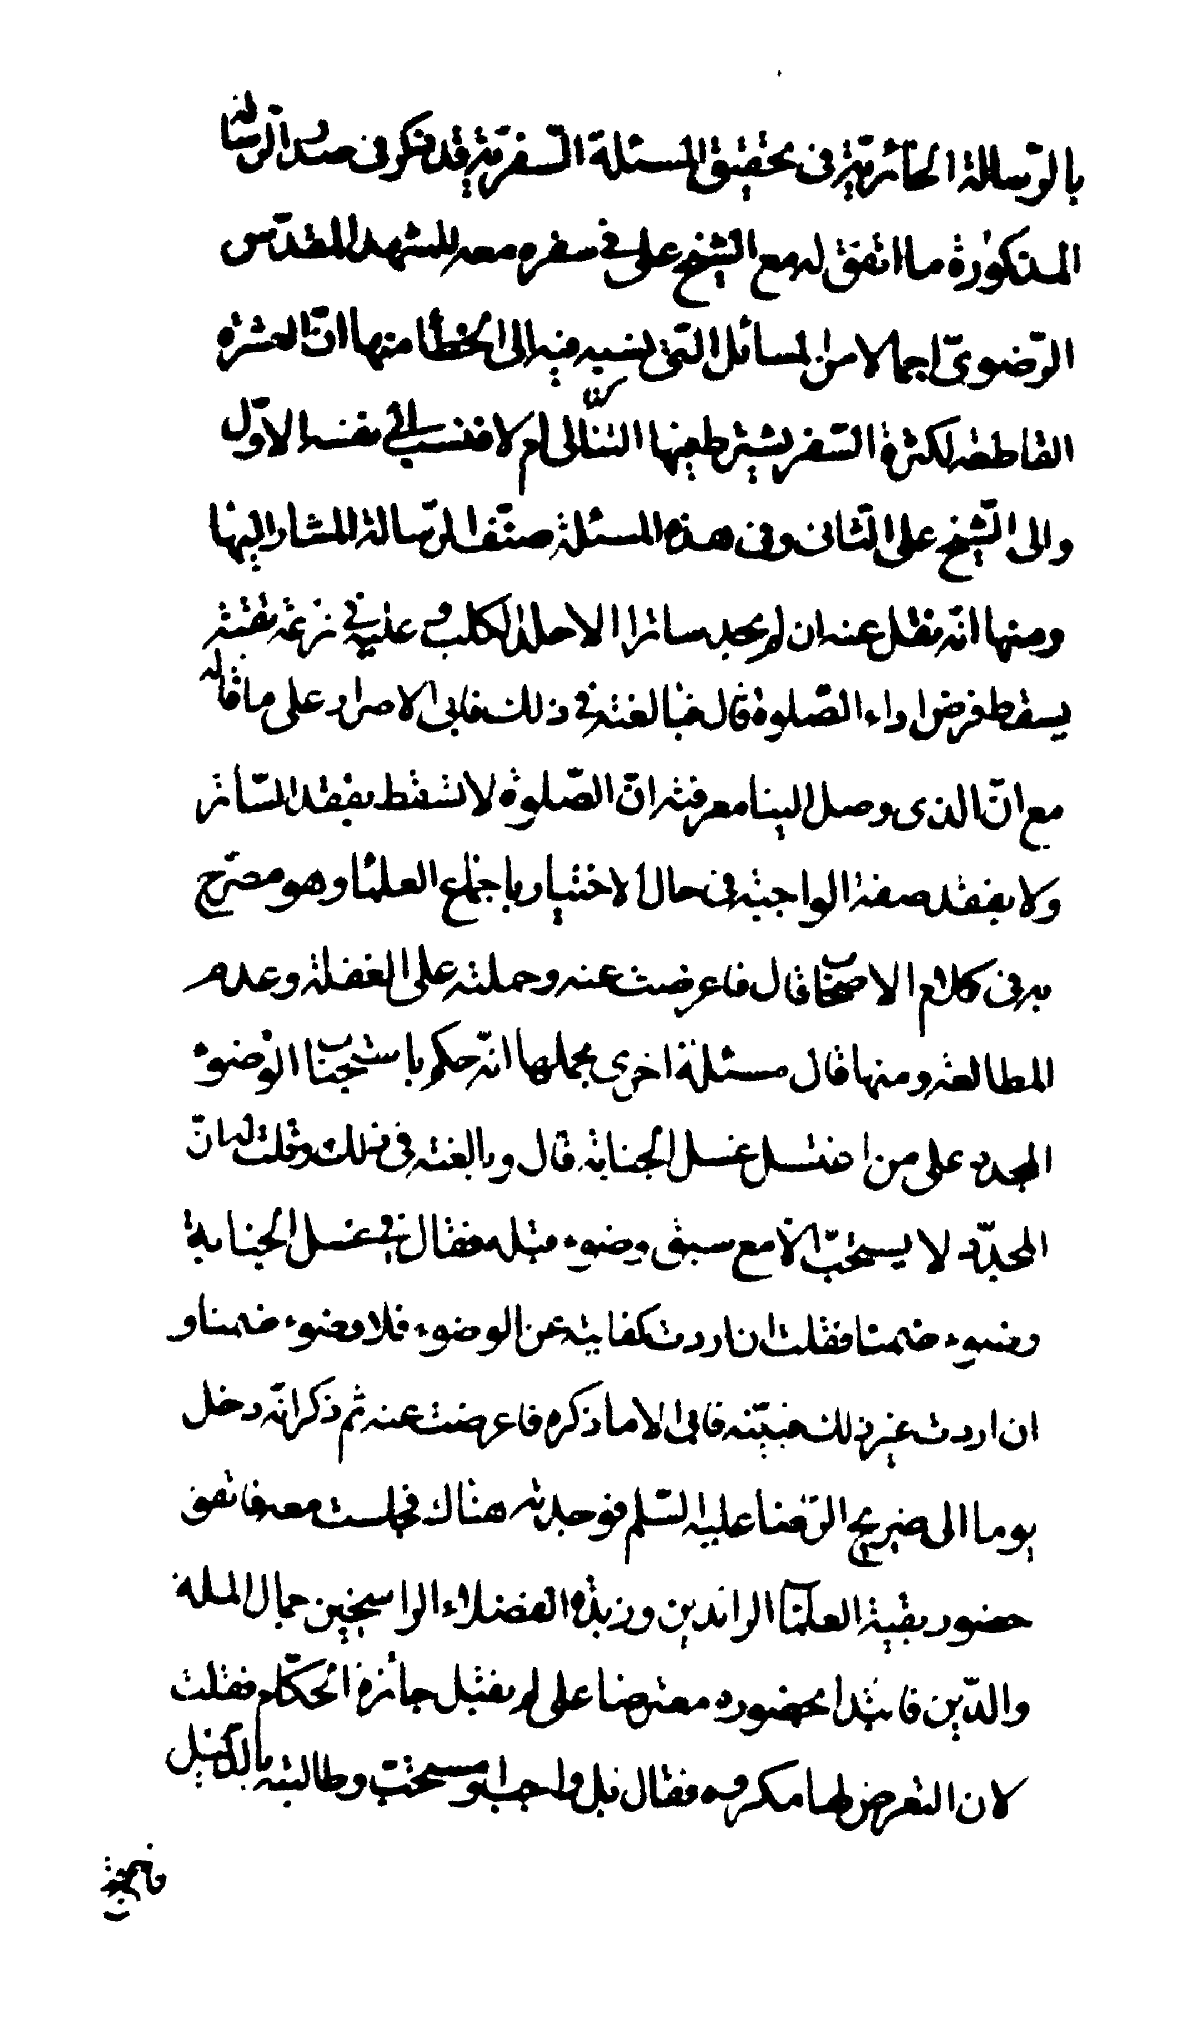 بالرّسالة الحائريّة فى تحقيق المسئلة السّفريّة قد ذكر فى صدر الرّسالة
المذكورة ما اتفق له مع الشّيخ على فى سفره معه للمشهد المقدّس
الرّضوىّ اجمالا من المسائل الّتى ينسبه فيه الى الخطأ منها انّ العشرة
القاطعة لكثرة السّفر يشترط فيها التّوالى ام لا فنسب الى نفسه الاوّل
والى الشّيخ على الثّانى وفى هذه المسئلة صنّف الرّسالة المشار اليها
ومنها انّه نقل عنه ان لم يجد ساترا الا جلد الكلب و عليه فى نزعه تقيّة
يسقط فرض اداء الصّلوة قال فبالغته فى ذلك فابى الا الاصرار على ما قاله
مع انّ الذى وصل الينا معرفته انّ الصّلوة لا تسقط بفقد السّاتر
ولا بفقد صفته الواجبة فى حال الاختيار باجماع العلماء وهو مصرّح
به فى كلام الاصحاب قال فاعرضت عنه وحملته على الغفلة وعدم
المطالعة ومنها قال مسئلة اخرى مجملها انّه حكم باستحباب الوضوء
المجدد على من اغتسل غسل الجنابة قال وبالغته فى ذلك وقلت له انّ
المجدّد لا يستحبّ الّا مع سبق وضوء قبله فقال فى غسل الجنابة
وضوء ضمنا فقلت ان اردت كفايته عن الوضوء فلا وضوء ضمنا و
ان اردت غير ذلك فبيّنه فابى الا ما ذكره فاعرضت عنه ثم ذكر انّه دخل
يوما الى ضريح الرّضا عليه السّلم فوجدته هناك فجلست معه فاتفق
حضور بقية العلماء الوافدين وزبدة الفضلاء الراسخين جمال الملة
والدّين فابتدا بحضوره معترضا على لم يقبل جائزة الحكّام فقلت
لان التعرض لها مكروه فقال بل واجب او مستحبّ وطالبته بالدّليل